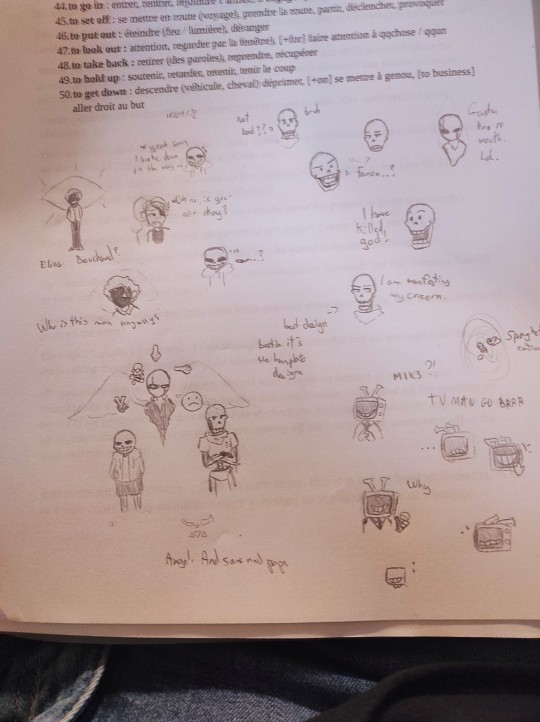 44. to go in : entrer, rentrer, rejoindre
45. to set off : se mettre en route (voyage), prendre la route, partir, déclencher, provoquer
46. to put out : éteindre (feu / lumière), déranger
47. to look out : attention, regarder par la fenêtre, [+for] faire attention à qqchose / qqun
48. to take back : retirer (des paroles), reprendre, récupérer
49. to hold up : soutenir, retarder, retenir, tenir le coup
50. to get down : descendre (véhicule, cheval) déprimer, [+on] se mettre à genou, [to business]
aller droit au but
not
bad??
bruh
yeah sorry
I broke down
on the way
Gaster
has no
mouth.
Lol.
Oh no, is your
car okay?
I have
killed
god!
Elias Bouchard?
...?
Who is this man anyways
I am manifesting
my concern.
bad design
but it's
the template
design
MIKE?!
TV MAN GO BRRR
...
Why
Angel. And sans and paps